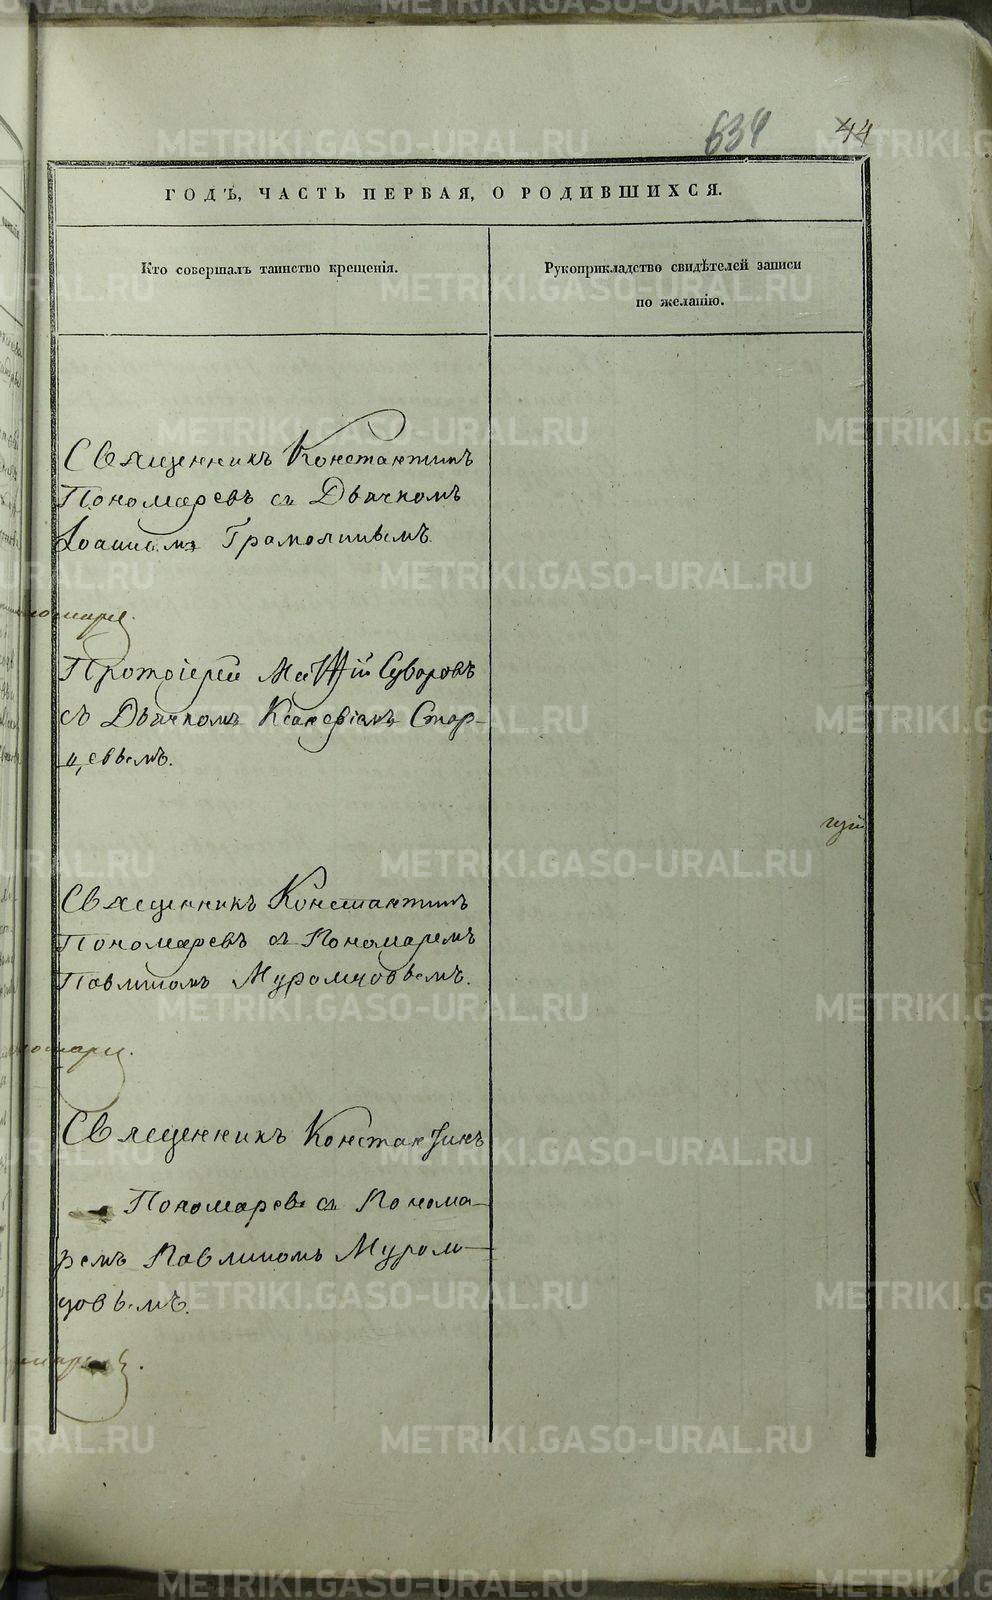 634 44
ГОДЪ, ЧАСТЬ ПЕРВАЯ, О РОДИВШИХСЯ.
Кто совершалъ таинство крещенія.
Рукоприкладство свидѣтелей записи
по желанію.
Священникъ Константинъ
Пономаревъ съ Дьячкомъ
Іоанномъ Грамолинымъ.
Протоіерей Матѳій Суворовъ
съ Дьячкомъ Старцевымъ.
Священникъ Константинъ
Пономаревъ съ Пономаремъ
Павлиномъ Муромцовымъ.
Священникъ Константинъ
Пономаревъ съ Понома-
ремъ Павлиномъ Муром-
цовымъ.
METRIKI.GASO-URAL.RU